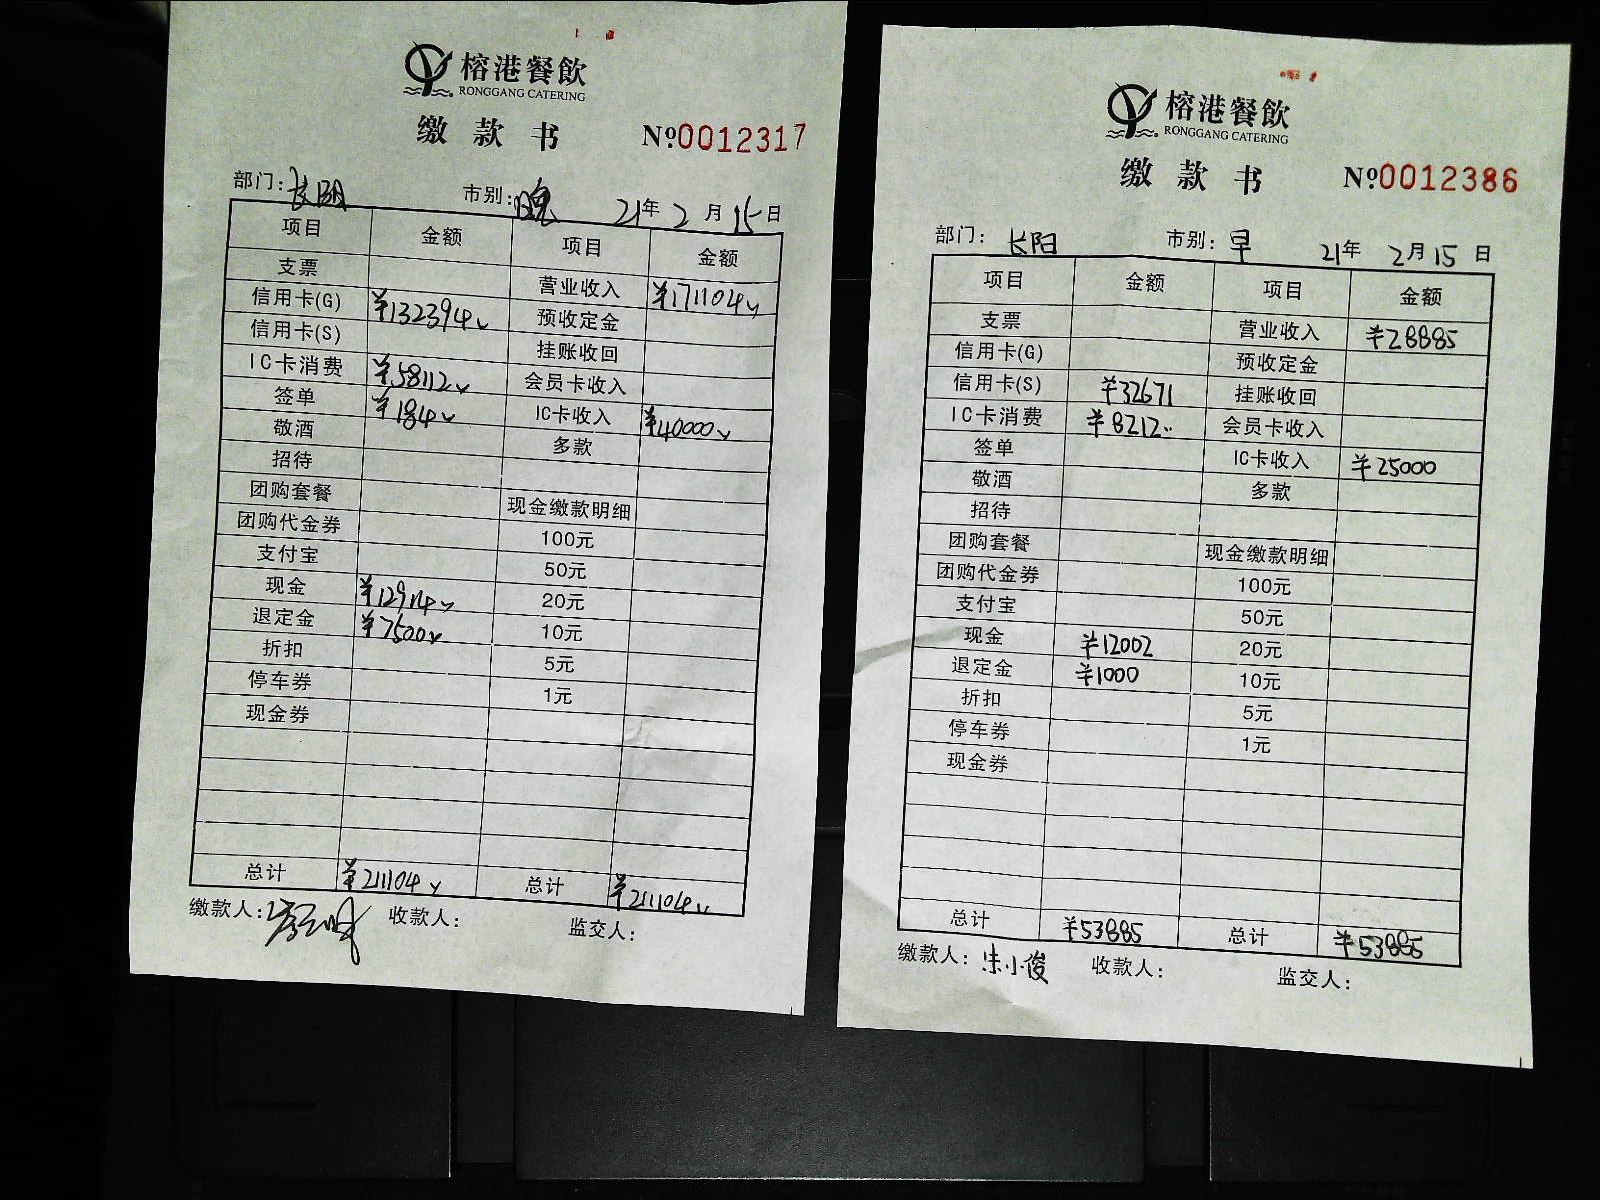 榕港餐飲
RONGGANG CATERING
缴款书 №0012317
部门：长阳 市别：晚 21年 2月 15日
项目 金额 项目 金额
支票 营业收入 ¥171104
信用卡(G) ¥132394 预收定金
信用卡(S) 挂账收回
IC卡消费 ¥58112 会员卡收入
签单 ¥184 IC卡收入 ¥40000
敬酒 多款
招待
团购套餐 现金缴款明细
团购代金券 100元
支付宝 50元
现金 ¥12914 20元
退定金 ¥7500 10元
折扣 5元
停车券 1元
现金券
总计 ¥211104 总计 ¥211104
缴款人： 收款人： 监交人：
榕港餐飲
RONGGANG CATERING
缴款书 №0012386
部门：长阳 市别：早 21年 2月 15日
项目 金额 项目 金额
支票 营业收入 ¥28885
信用卡(G) 预收定金
信用卡(S) ¥32671 挂账收回
IC卡消费 ¥8212 会员卡收入
签单 IC卡收入 ¥25000
敬酒 多款
招待
团购套餐 现金缴款明细
团购代金券 100元
支付宝 50元
现金 ¥12002 20元
退定金 ¥1000 10元
折扣 5元
停车券 1元
现金券
总计 ¥53885 总计 ¥53885
缴款人：朱小俊 收款人： 监交人：